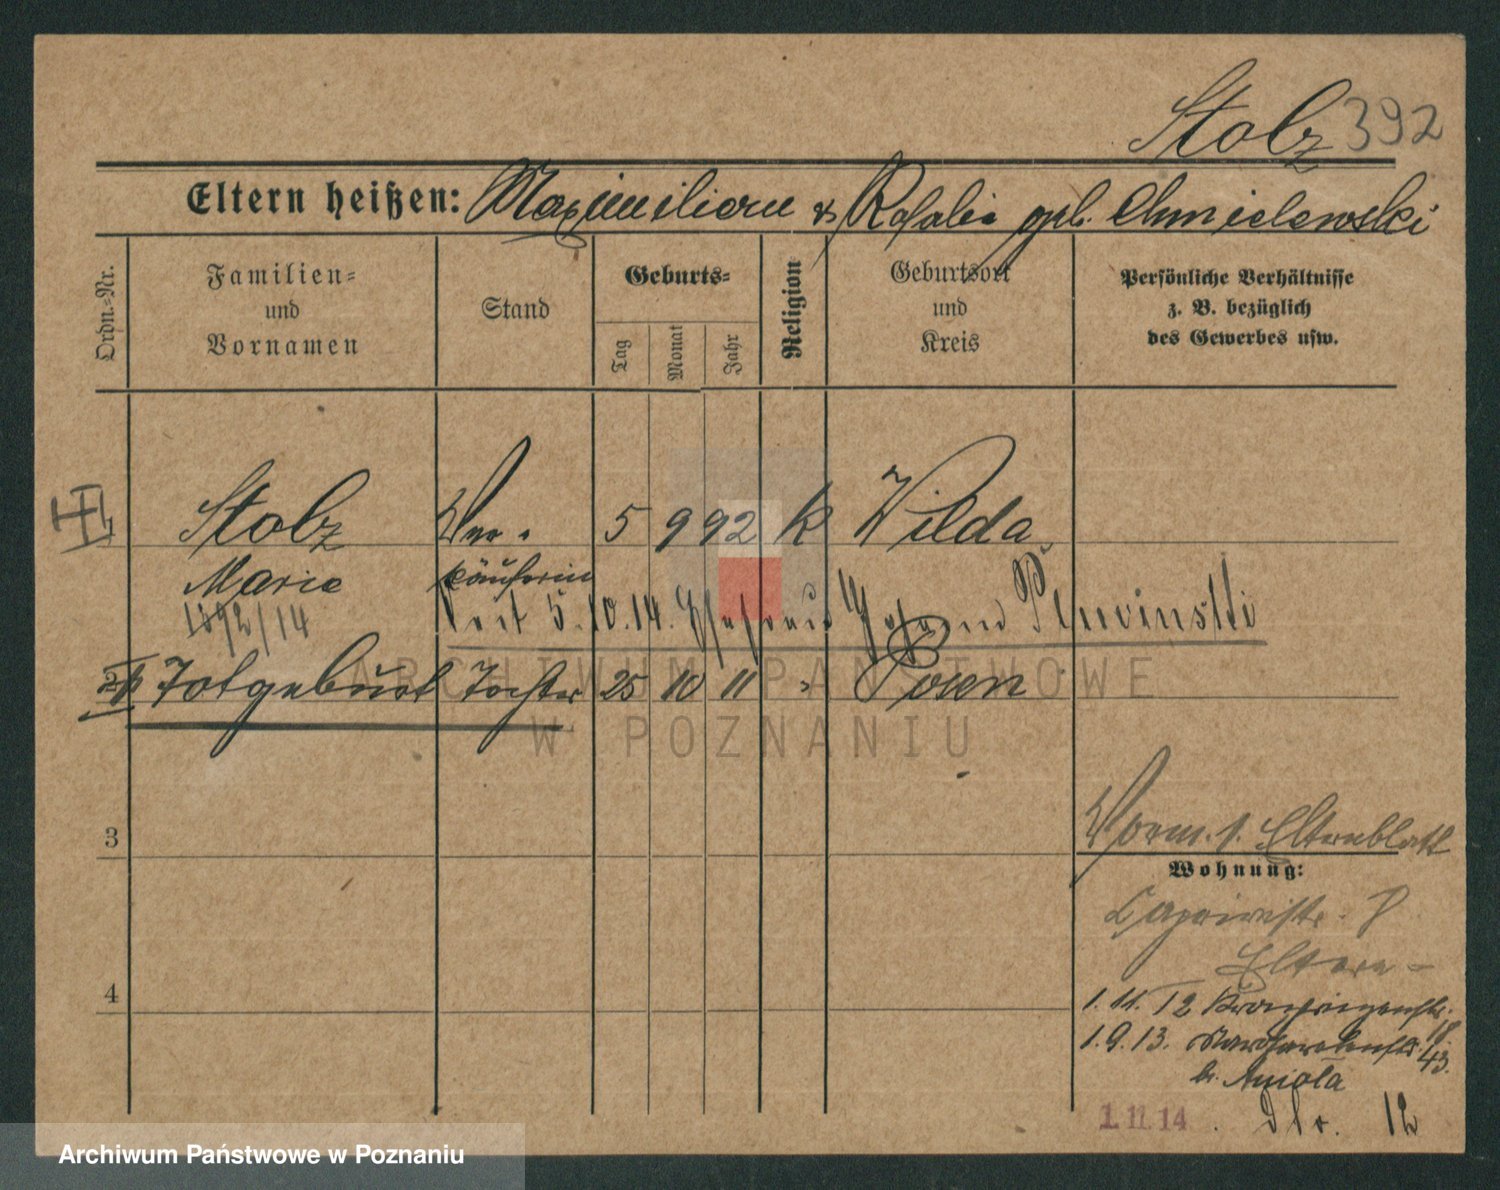 Stolz 392
Eltern heißen: Maximilian & Rosalie geb. Chmielewski
Ordn.-Nr.
Familien- und Vornamen
Stand
Geburts-
Tag
Monat
Jahr
Religion
Geburtsort und Kreis
Persönliche Verhältnisse z. B. bezüglich des Gewerbes usw.
1 Stolz Ver- 5 9 92 k Wilda
Marie käuferin
1892/14 seit 5.10.14. Ehefrau
2 Totgeburt Tochter 25 10 11 " Posen
ARCHIWUM PAŃSTWOWE
W POZNANIU
3
Vorm. s. Elternblatt
Wohnung:
Caprivistr. 7
Eltern
4
1.11.12 Kronprinzenstr. 18
1.9.13. Margaretenstr. 43.
b. Aniola
1.11.14 12
Archiwum Państwowe w Poznaniu